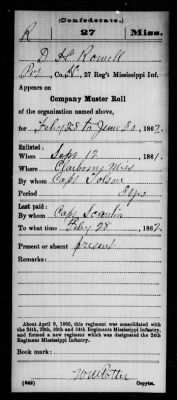 (Confederate.)
R 27 Miss.
D H Rowell
Pvt, Co. K, 27 Reg't Mississippi Inf.
Appears on
Company Muster Roll
of the organization named above,
for Feby 28 to June 30, 1862.
Enlisted:
When Sept. 12, 1861.
Where Claiborne Miss
By whom Capt.
Period 3 Yrs.
Last paid:
By whom Capt.
To what time Feby 28, 1862.
Present or absent Present
Remarks:
About April 9, 1865, this regiment was consolidated with
the 24th, 29th, 30th and 34th Regiments Mississippi Infantry,
and formed a new regiment which was designated the 24th
Regiment Mississippi Infantry.
Book mark:
(642) Copyist.